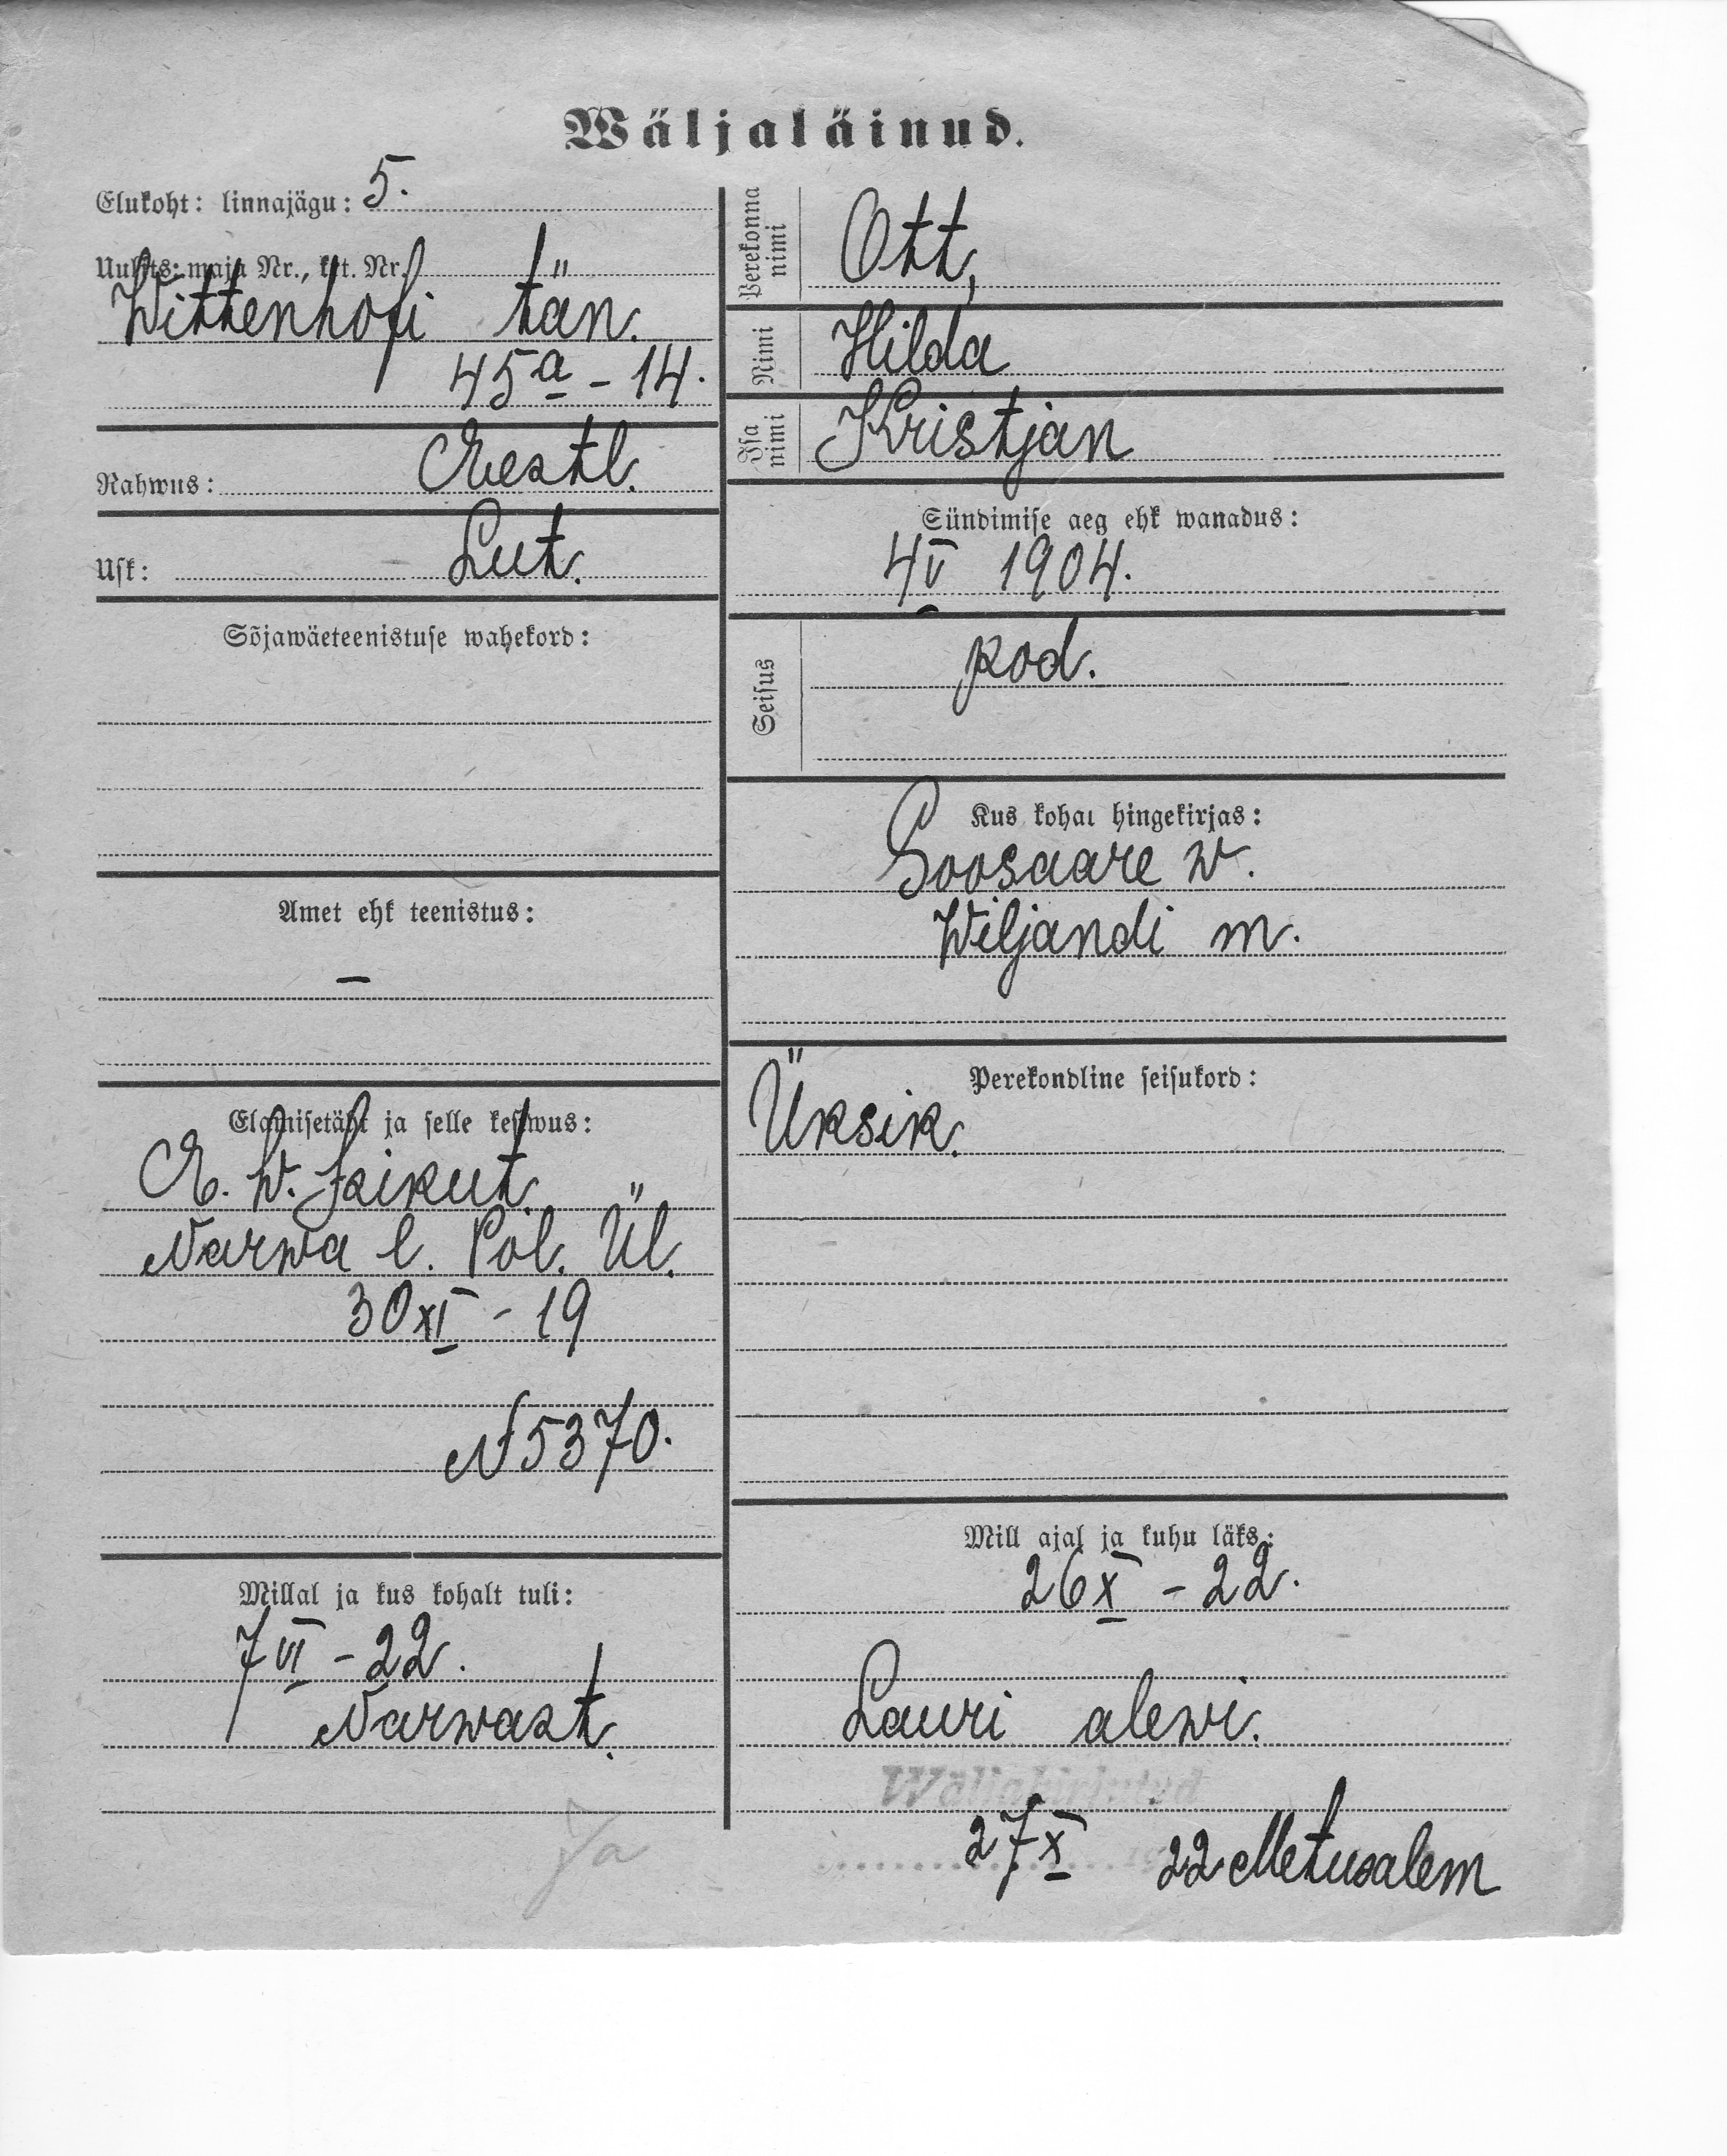 Wäljaläinud.
Elukoht: linnajägu: 5.
Uulits: maja Nr., krt. Nr.
Wittenhofi tän.
45a - 14.
Rahwus: Eestl.
Usk: Lut.
Sõjawäeteenistuse wahekord:
Amet ehk teenistus:
–
Elamisetäht ja selle kestwus:
E. W. Isikut.
Narwa l. Pol. Ül.
30 XI - 19
N 5370.
Millal ja kus kohalt tuli:
7 VI - 22.
Narwast.
Ja
Perekonna nimi
Ott,
Nimi
Hilda
Isa nimi
Kristjan
Sündimise aeg ehk wanadus:
4 V 1904.
Seisus
kod.
Kus kohal hingekirjas:
Soosaare w.
Wiljandi m.
Perekondline seisukord:
Üksik.
Mill ajal ja kuhu läks:
26 X - 22.
Lauri alewi.
Wäljakirjutud
27 X 22 Metusalem